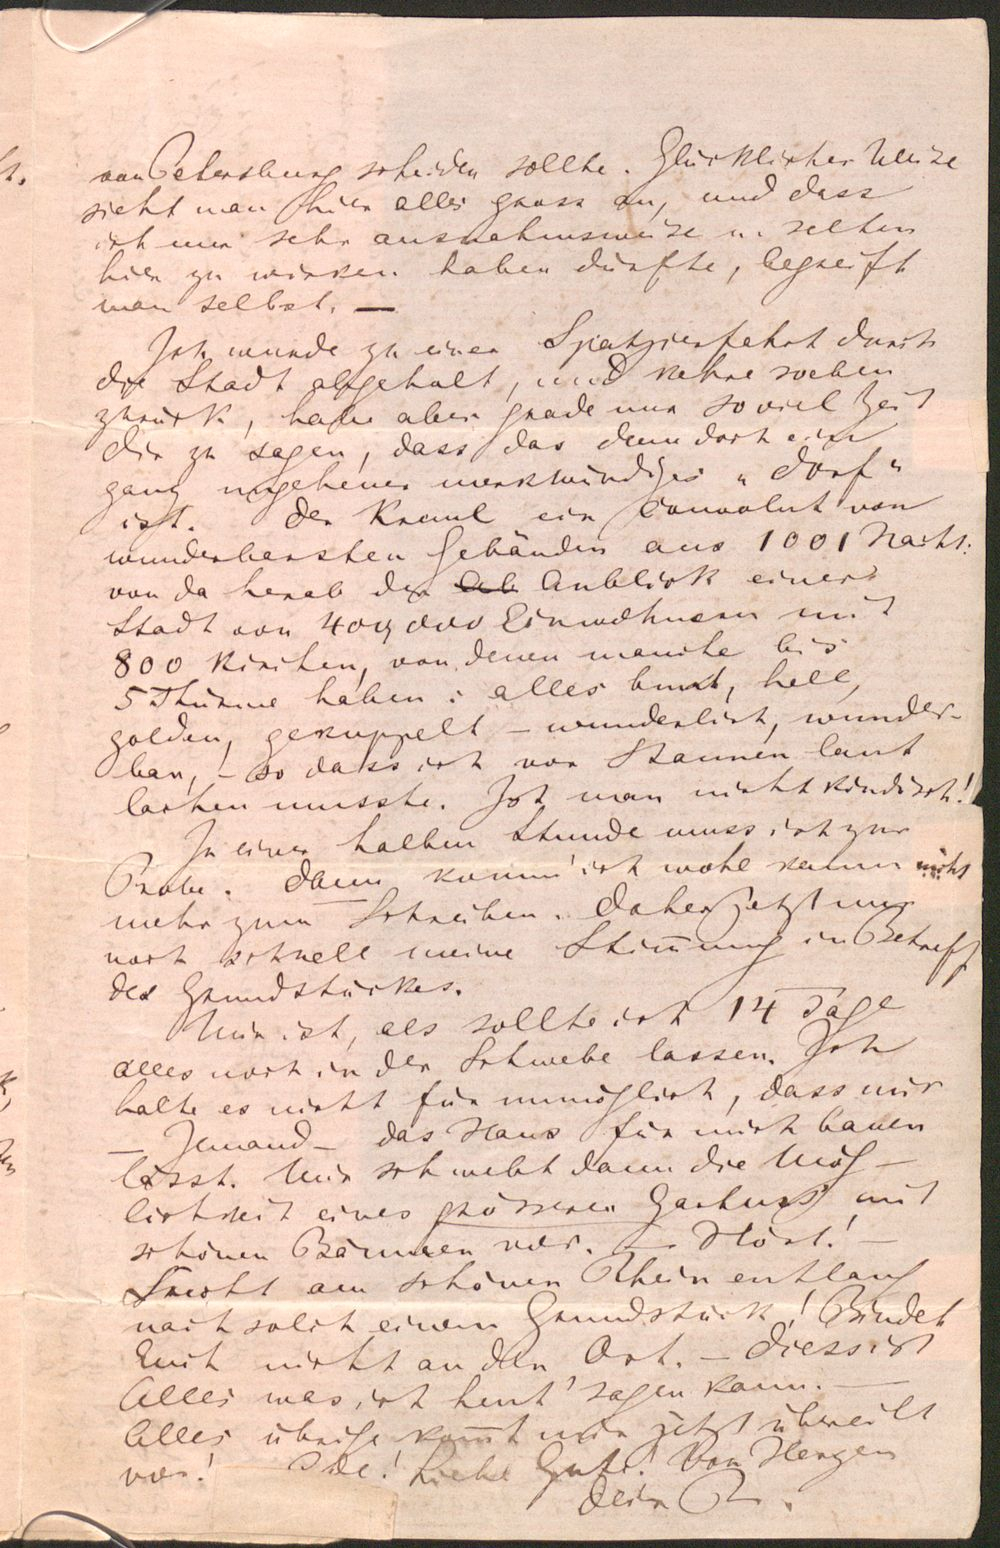 von Petersburg scheiden sollte. Glücklicher Weise
sieht man hier alles gross an, und dass
ich nur sehr ausnahmsweise u. selten
hier zu wirken haben dürfte, begreift
man selbst. —
Ich wurde zu einer Spatzierfahrt durch
die Stadt abgeholt, und kehre soeben
zurück, habe aber grade nur so viel Zeit
dir zu sagen, dass das denn doch ein
ganz ungeheuer merkwürdiges „dorf"
ist. Der Kreml ein Convolut von
wunderbarsten Gebäuden aus 1001 Nacht:
von da herab der Anblick einer
Stadt von 400,000 Einwohnern mit
800 Kirchen, von denen manche bis
5 Thürme haben: alles bunt, hell,
golden, gekuppelt – wunderlich, wunder-
bar, – so dass ich vor Staunen laut
lachen musste. Ist man nicht kindisch!
In einer halben Stunde muss ich zur
Probe. Dann komm' ich wohl kaum
mehr zum Schreiben. Daher jetzt nur
noch schnell meine Stimmung in Betreff
des Grundstückes.
Mir ist, als sollte ich 14 Tage
alles noch in der Schwebe lassen. Ich
halte es nicht für unmöglich, dass mir
– Jemand – das Haus für mich bauen
lässt. Mir schwebt dann die Mög-
lichkeit eines grösseren Gartens mit
schönen Bäumen vor. — Hört! –
Sucht am schönen Rhein entlang
nach solch einem Grundstück! Bindet
Euch nicht an den Ort. – Diess ist
Alles was ich heut' sagen kann. —
Alles übrige kommt mir jetzt übereilt
vor! Ade! Liebe Gute! Von Herzen
dein R.